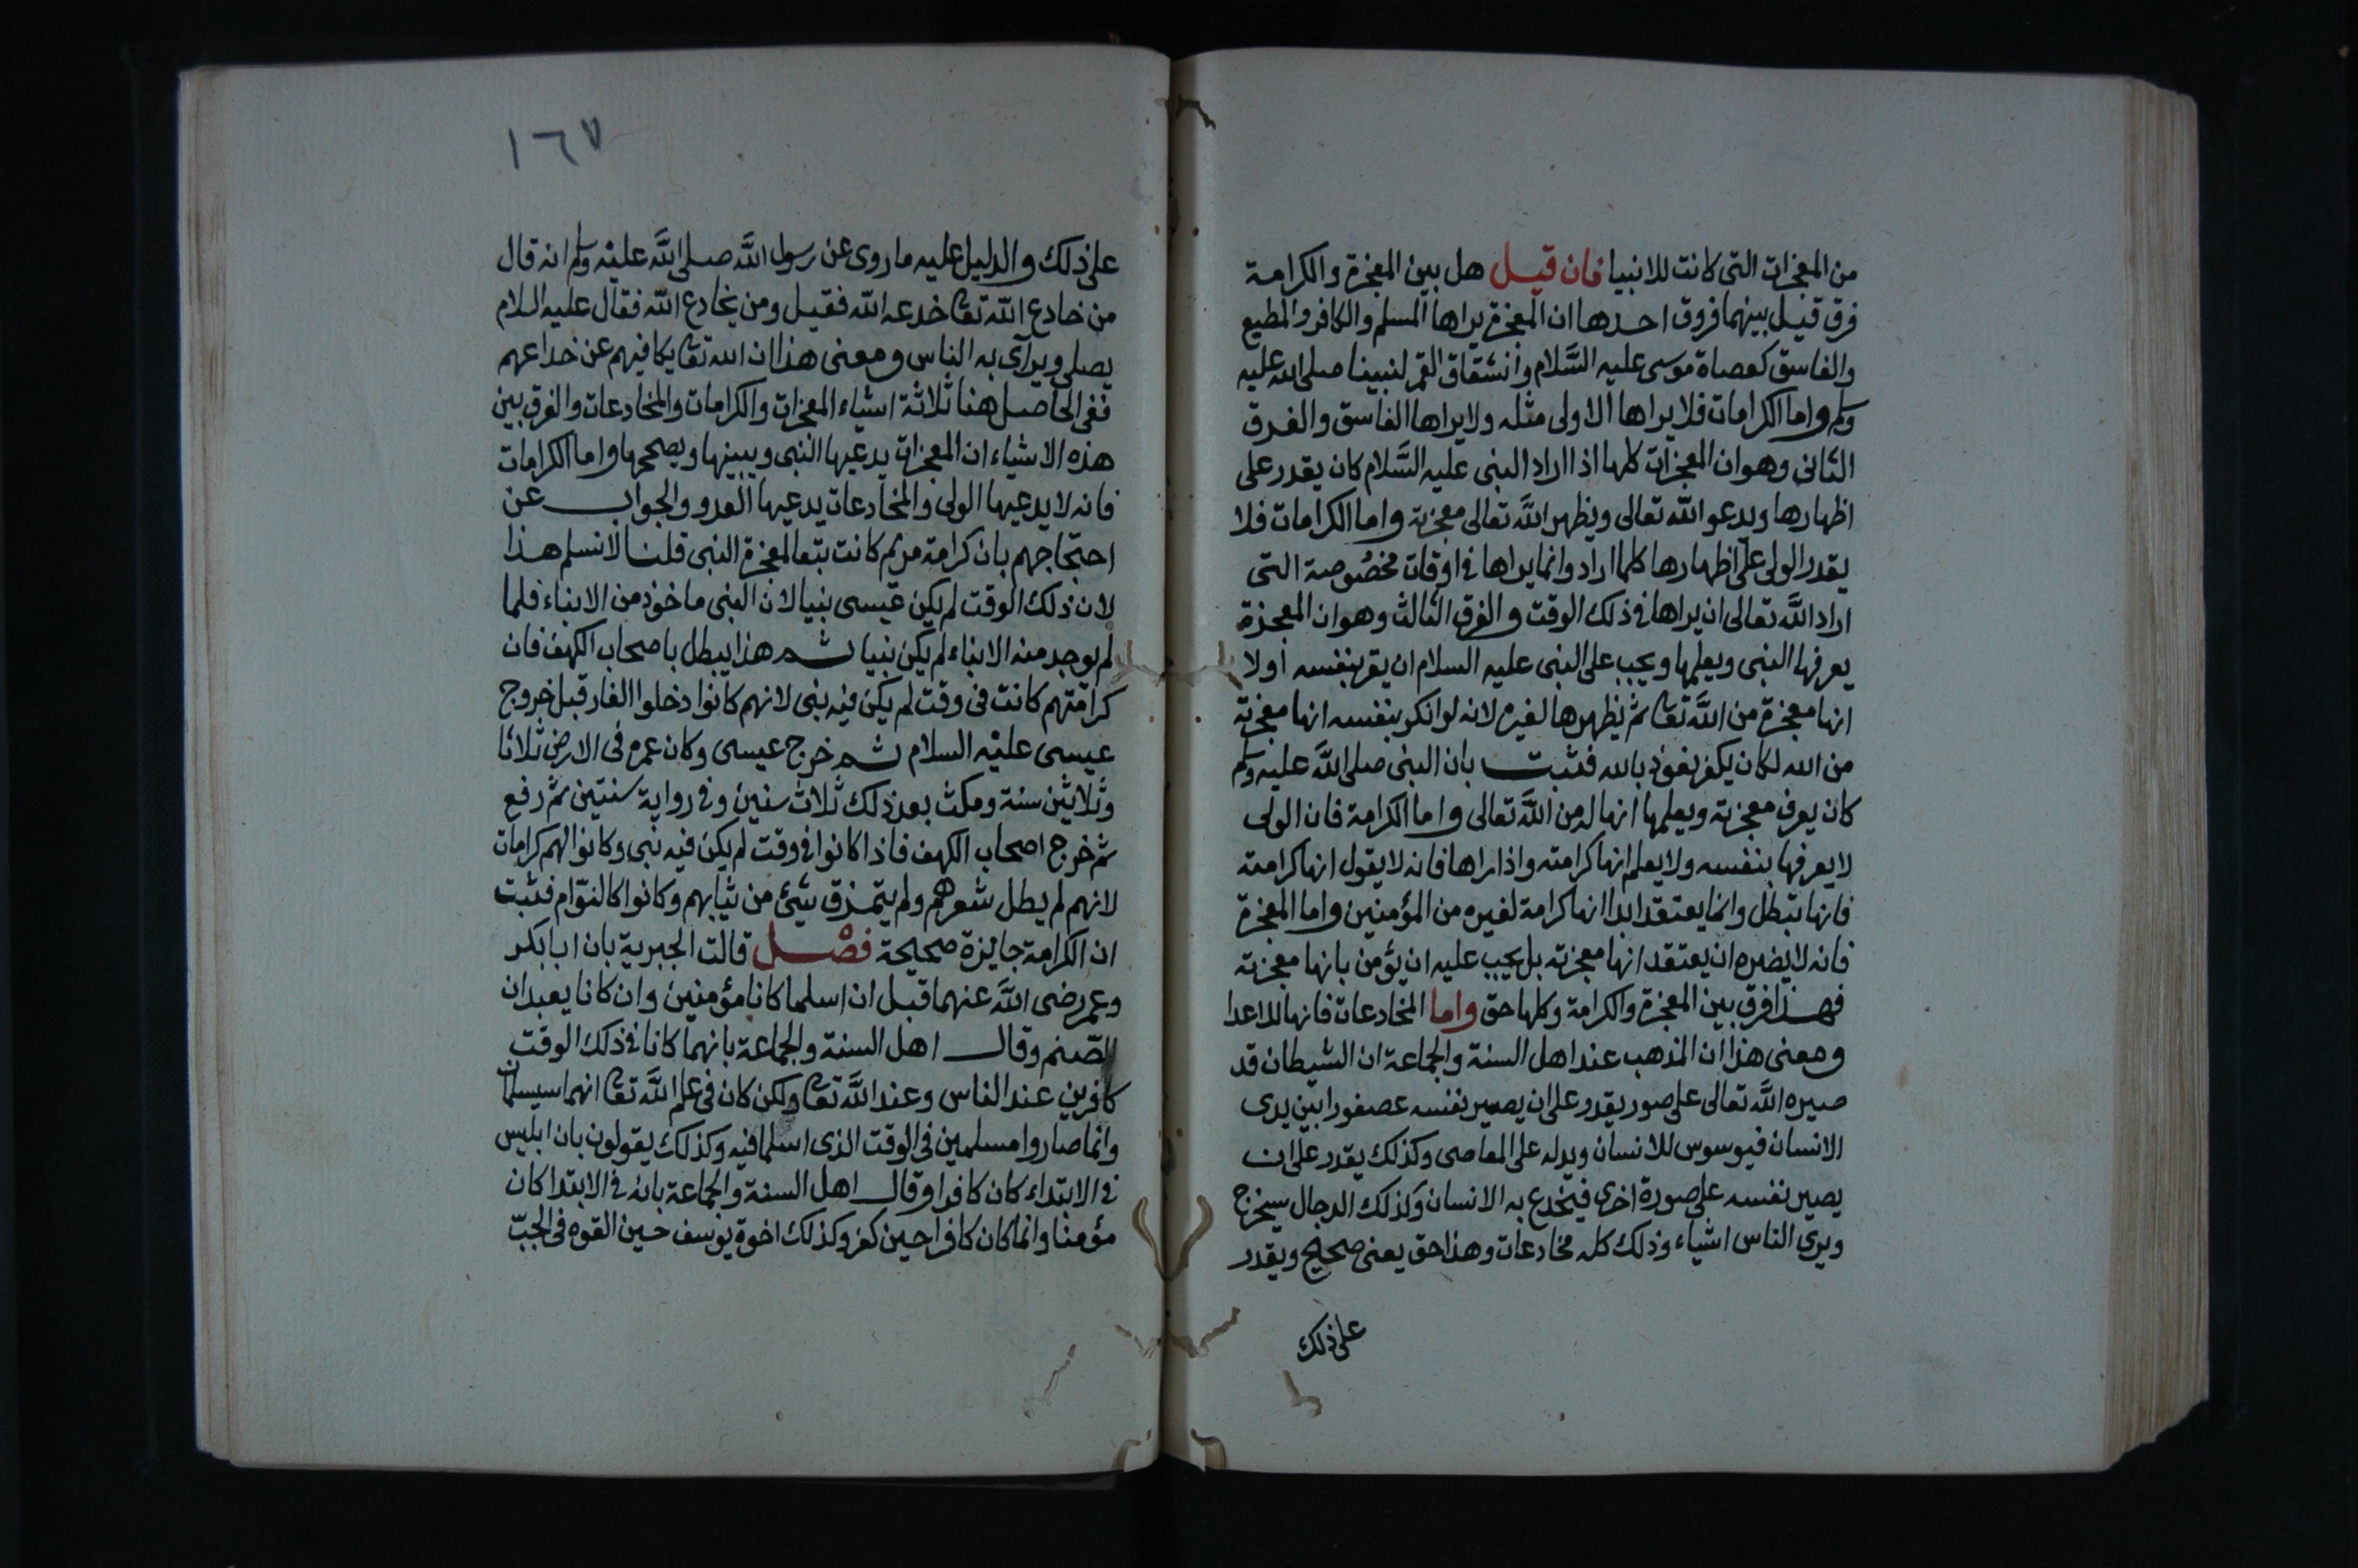 من المعجزات التى كانت للانبيا فان قيل هل بين المعجزة والكرامة
فرق قيل بينهما فروق احدها ان المعجزة يراها المسلم والكافر والمطيع
والفاسق كعصاة موسى عليه السَّلام وانشقاق القمر لنبينا صلى الله عليه
وسلم واما الكرامات فلا يراها الا ولى مثله ولا يراها الفاسق والفرق
الثانى وهو ان المعجزات كلها اذا اراد النبى عليه السَّلام كان يقدر على
اظهارها ويدعو الله تعالى ويظهر اللَّه تعالى معجزته واما الكرامات فلا
يقدر الولى على اظهارها كلما اراد وانما يراها فى اوقات مخصُوصة التى
اراد اللَّه تعالى ان يراها فى ذلك الوقت والفرق الثالث وهو ان المعجزة
يعرفها النبى ويعلمها ويجب على النبى عليه السلام ان يقر بنفسه اولا
انها معجزة من اللَّه تعا ثم يظهرها لغيره لانه لو انكر بنفسه انها معجزته
من الله لكان يكفر نعوذ بالله فثبت بان النبى صلى اللَّه عليه وسلم
كان يعرف معجزته ويعلمها انها له من اللَّه تعالى واما الكرامة فان الولى
لا يعرفها بنفسه ولا يعلم انها كرامته واذا راها فانه لا يقول انها كرامته
فانها تبطل وانما يعتقد ابدا انها كرامة لغيره من المؤمنين واما المعجزة
فانه لا يضره ان يعتقد انها معجزته بل يجب عليه ان يؤمن بانها معجزته
فهذا فرق بين المعجزة والكرامة وكلها حق واما المخادعات فانها للاعدا
ومعنى هذا ان المذهب عند اهل السنة والجماعة ان الشيطان قد
صيره اللَّه تعالى على صور يقدر على ان يصير نفسه عصفورا بين يدى
الانسان فيوسوس للانسان ويدله على المعاصى وكذلك يقدر على ان
يصير نفسه على صورة اخرى فيخدع به الانسان وكذلك الدجال سيخرج
ويرى الناس اشياء وذلك كله مخادعات وهذا حق يعنى صحيح ويقدر
على ذلك
١٦٧
على ذلك والدليل عليه ما روى عن رسول اللَّه صلى اللَّه عليْه وسلم انه قال
من خادع اللَّه تعا خدعه الله فقيل ومن يخادع اللَّه فقال عليه السلام
يصلى ويرآى به الناس ومعنى هذا ان الله تعا يكافيهم عن خداعهم
ففى الحاصل هنا ثلاثة اشياء المعجزات والكرامات والمخادعات والفرق بين
هذه الاشياء ان المعجزات يدعيها النبى ويبينها ويصححها واما الكرامات
فانه لا يدعيها الولى والمخادعات يدعيها العدو والجواب عن
احتجاجهم بان كرامة مريم كانت تبعا لمعجزة النبى قلنا لا نسلم هذا
لان ذلك الوقت لم يكن عيسى نبيا لان النبى ماخوذ من الانباء فلما
لم يوجد منه الانباء لم يكن نبيا ثم هذا يبطل باصحاب الكهف فان
كرامتهم كانت فى وقت لم يكن فيه نبى لانهم كانوا دخلوا الغار قبل خروج
عيسى عليْه السلام ثم خرج عيسى وكان عمره فى الارض ثلاثا
وثلاثين سنة ومكث بعد ذلك ثلاث سنين وفى رواية سنتين ثم رفع
ثم خرج اصحاب الكهف فاذا كانوا فى وقت لم يكن فيه نبى وكانوا لهم كرامات
لانهم لم يطل شعرهم ولم يتمزق شئ من ثيابهم وكانوا كالنوّام فثبت
ان الكرامة جايزة صحيحة فصْل قالت الجبرية بان ابا بكر
وعمر رضى اللَّه عنهما قبل ان اسلما كانا مؤمنين وان كانا يعبدان
الصّنم وقال اهل السنة والجماعة بانهما كانا فى ذلك الوقت
كافرين عند الناس وعند اللَّه تعا ولكن كان فى علم اللَّه تعا انهما سيسلمان
وانما صاروا مسلمين فى الوقت الذى اسلما فيه وكذلك يقولون بان ابليس
فى الابتداء كان كافرا وقال اهل السنة والجماعة بانه فى الابتدا كان
مؤمنا وانما كان كافرا حين كفر وكذلك اخوة يوسف حين القوه فى الجبّ